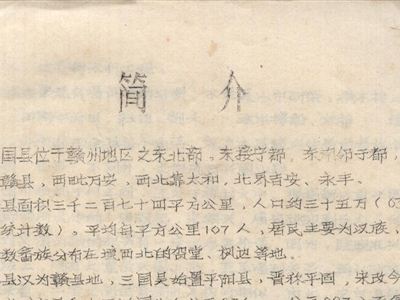 简 介
国县位于赣州地区之东北部。东接宁都，东南邻于都，
赣县，西毗万安，西北靠太和，北界吉安、永丰。
县面积三千二百七十四平方公里，人口约三十五万（6
统计数）。平均每平方公里107人，居民主要为汉族，
数畲族分布在城西北的贺堂、枫边等地。
县汉为赣县地，三国吴始置平阳县，晋称平固，宋改今